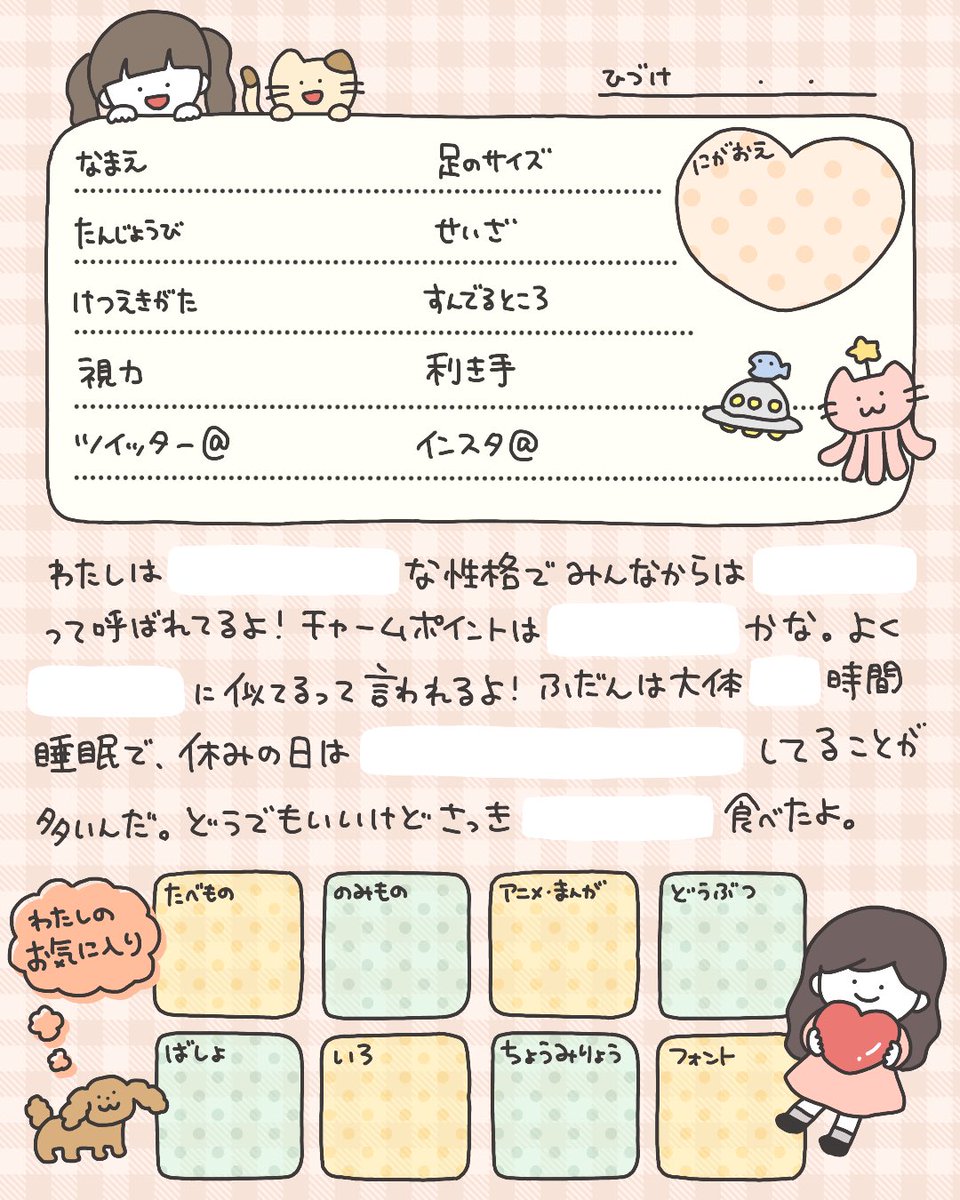 ひづけ . .
なまえ 足のサイズ
にがおえ
たんじょうび せいざ
けつえきがた すんでるところ
視力 利き手
ツイッター@ インスタ@
わたしは な性格で みんなからは
って呼ばれてるよ! チャームポイントは かな。よく
に似てるって言われるよ! ふだんは大体 時間
睡眠で、休みの日は してることが
多いんだ。どうでもいいけどさっき 食べたよ。
わたしの
お気に入り
たべもの のみもの アニメ・まんが どうぶつ
ばしょ いろ ちょうみりょう フォント